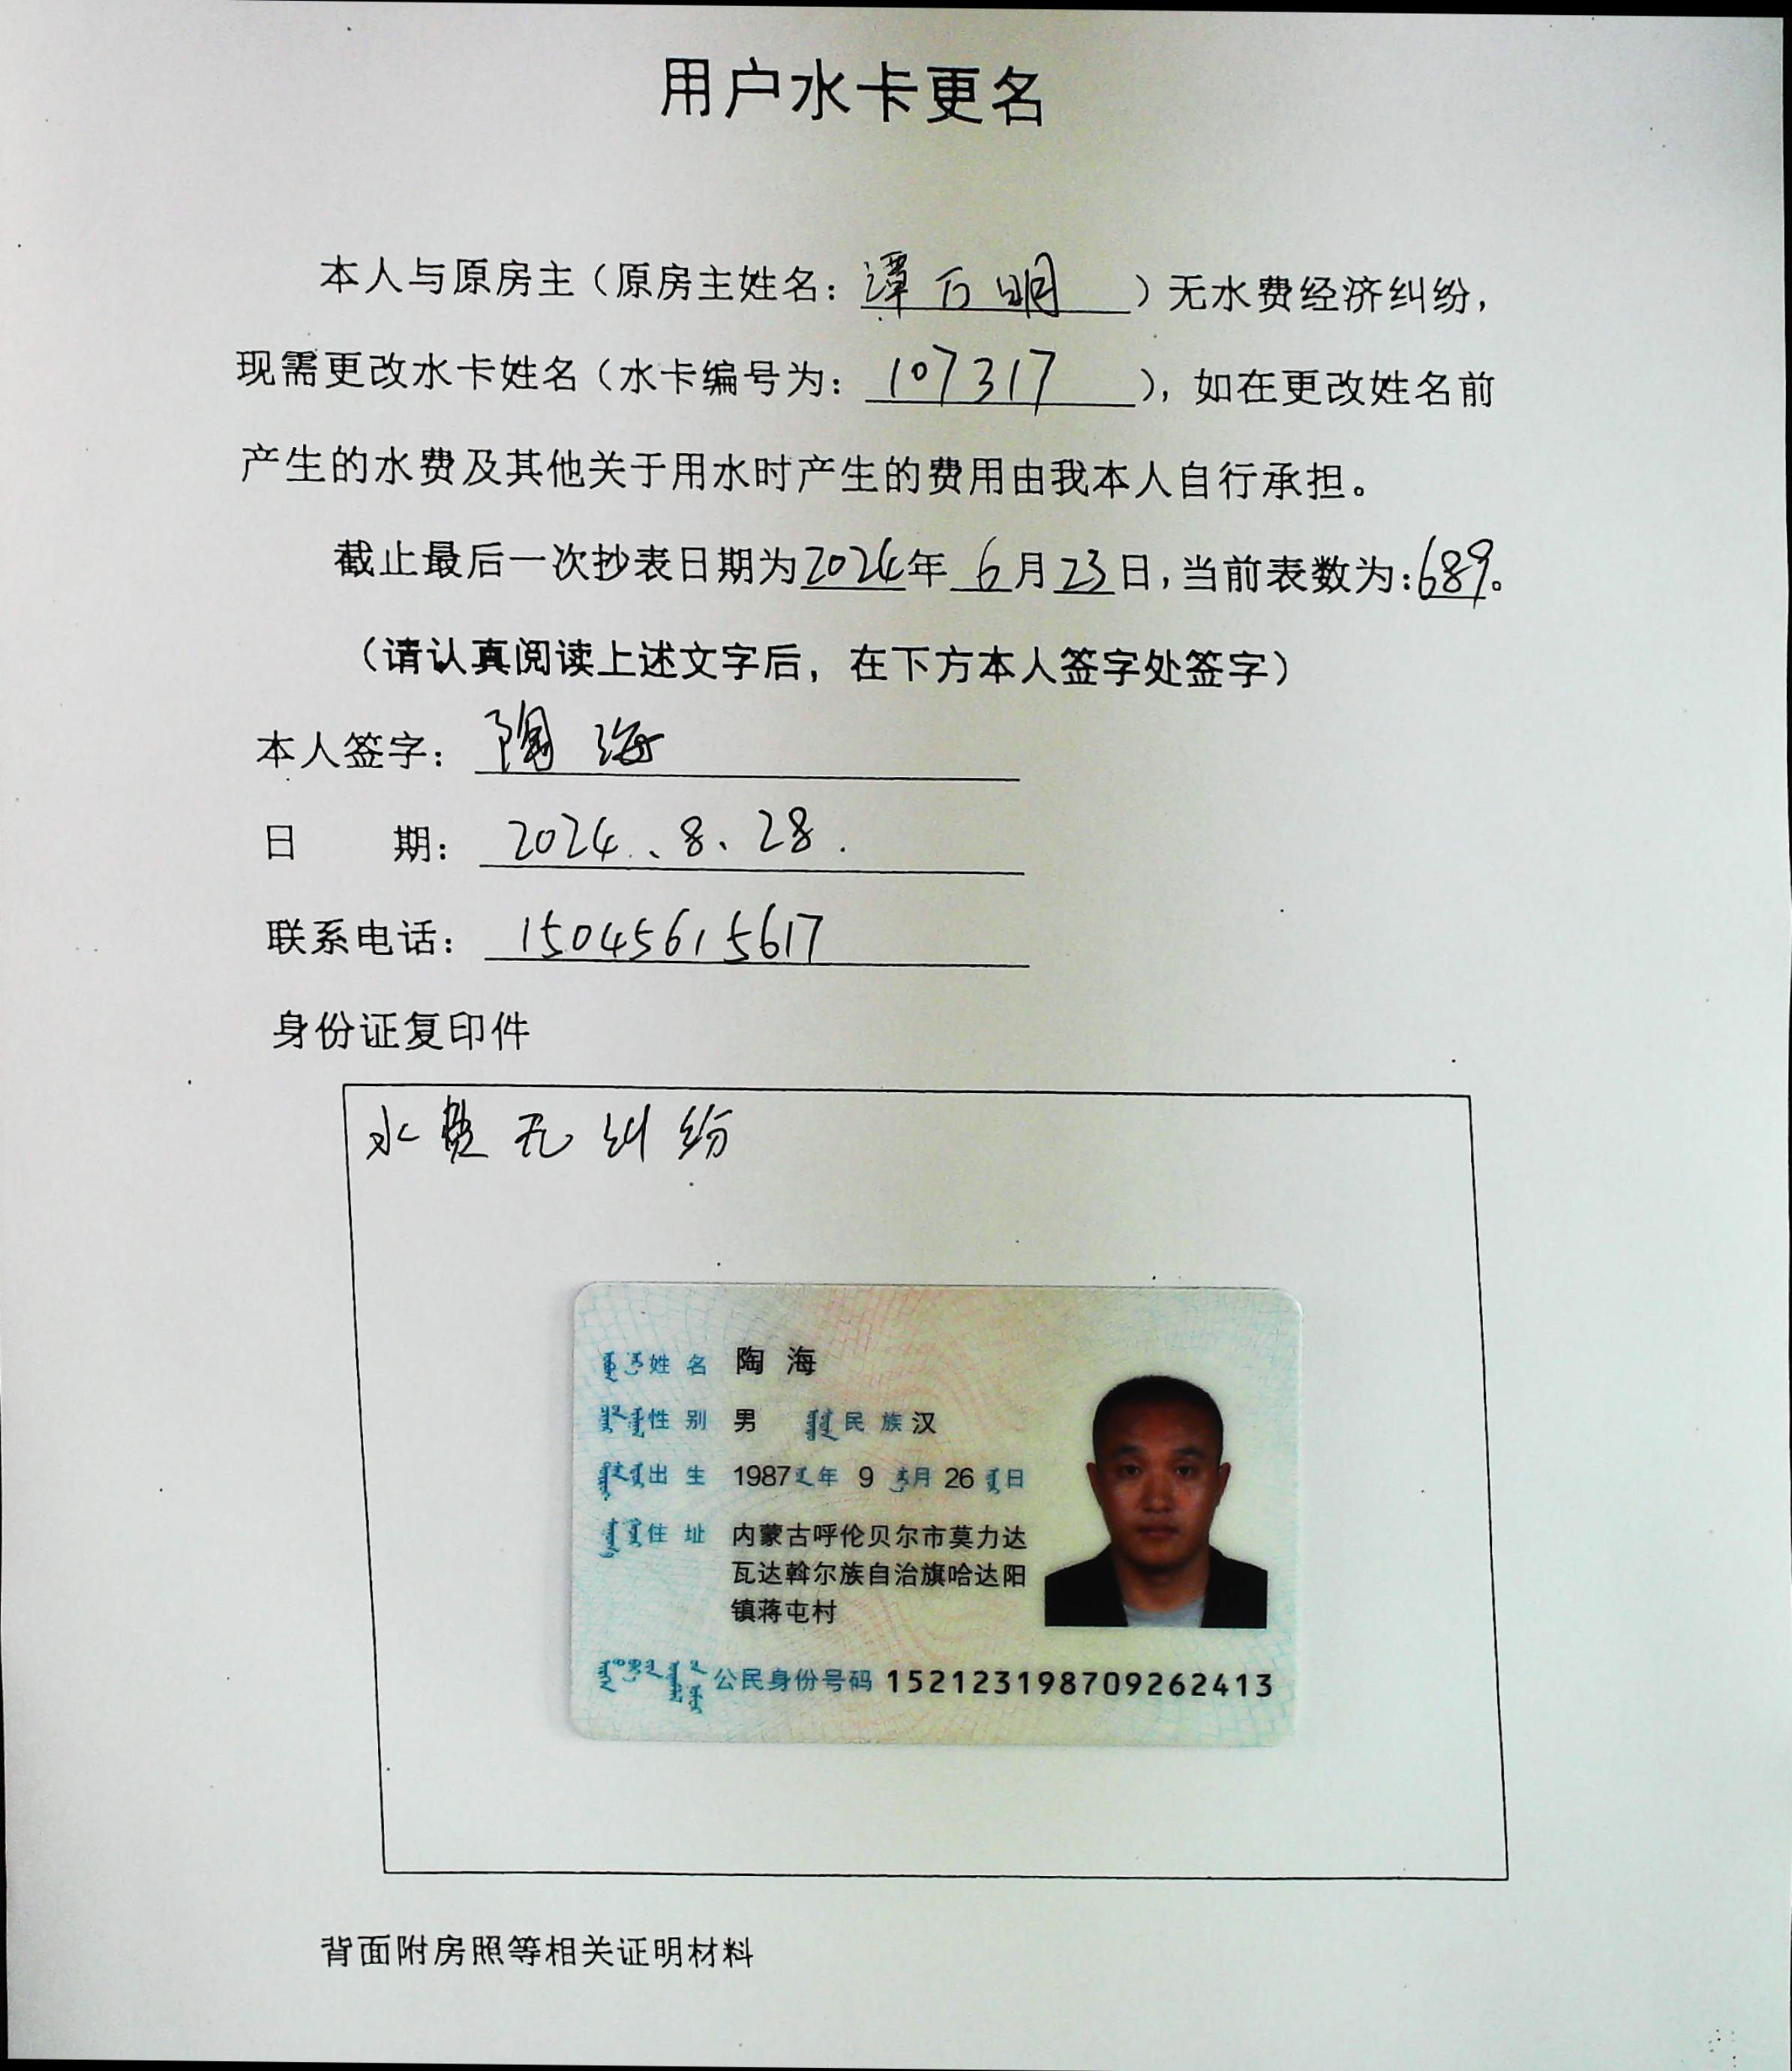 用户水卡更名
本人与原房主（原房主姓名：谭万明）无水费经济纠纷，
现需更改水卡姓名（水卡编号为：107317），如在更改姓名前
产生的水费及其他关于用水时产生的费用由我本人自行承担。
截止最后一次抄表日期为2024年6月23日，当前表数为:689。
（请认真阅读上述文字后，在下方本人签字处签字）
本人签字：陶海
日 期：2024、8、28.
联系电话：15045615617
身份证复印件
水费无纠纷
姓名 陶海
性别 男 民族 汉
出生 1987年9月26日
住址 内蒙古呼伦贝尔市莫力达
瓦达斡尔族自治旗哈达阳
镇蒋屯村
公民身份号码 152123198709262413
背面附房照等相关证明材料